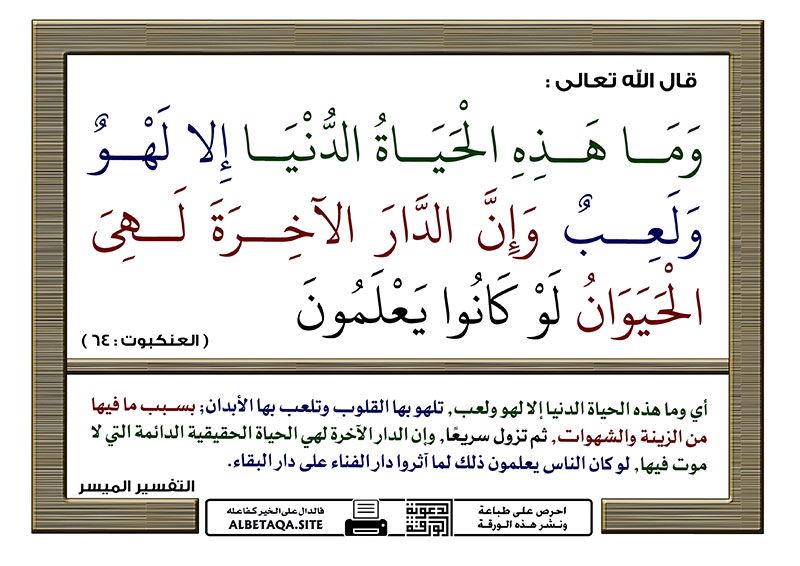 قال الله تعالى :
وَمَا هَذِهِ الْحَيَاةُ الدُّنْيَا إِلا لَهْوٌ
وَلَعِبٌ وَإِنَّ الدَّارَ الآخِرَةَ لَهِيَ
الْحَيَوَانُ لَوْ كَانُوا يَعْلَمُونَ
( العنكبوت : ٦٤ )
أي وما هذه الحياة الدنيا إلا لهو ولعب, تلهو بها القلوب وتلعب بها الأبدان; بسبب ما فيها
من الزينة والشهوات, ثم تزول سريعًا, وإن الدار الآخرة لهي الحياة الحقيقية الدائمة التي لا
موت فيها, لو كان الناس يعلمون ذلك لما آثروا دار الفناء على دار البقاء.
التفسير الميسر
احرص على طباعة
ونشر هذه الورقة
الورقة
الدعوية
فالدال على الخير كفاعله
ALBETAQA.SITE